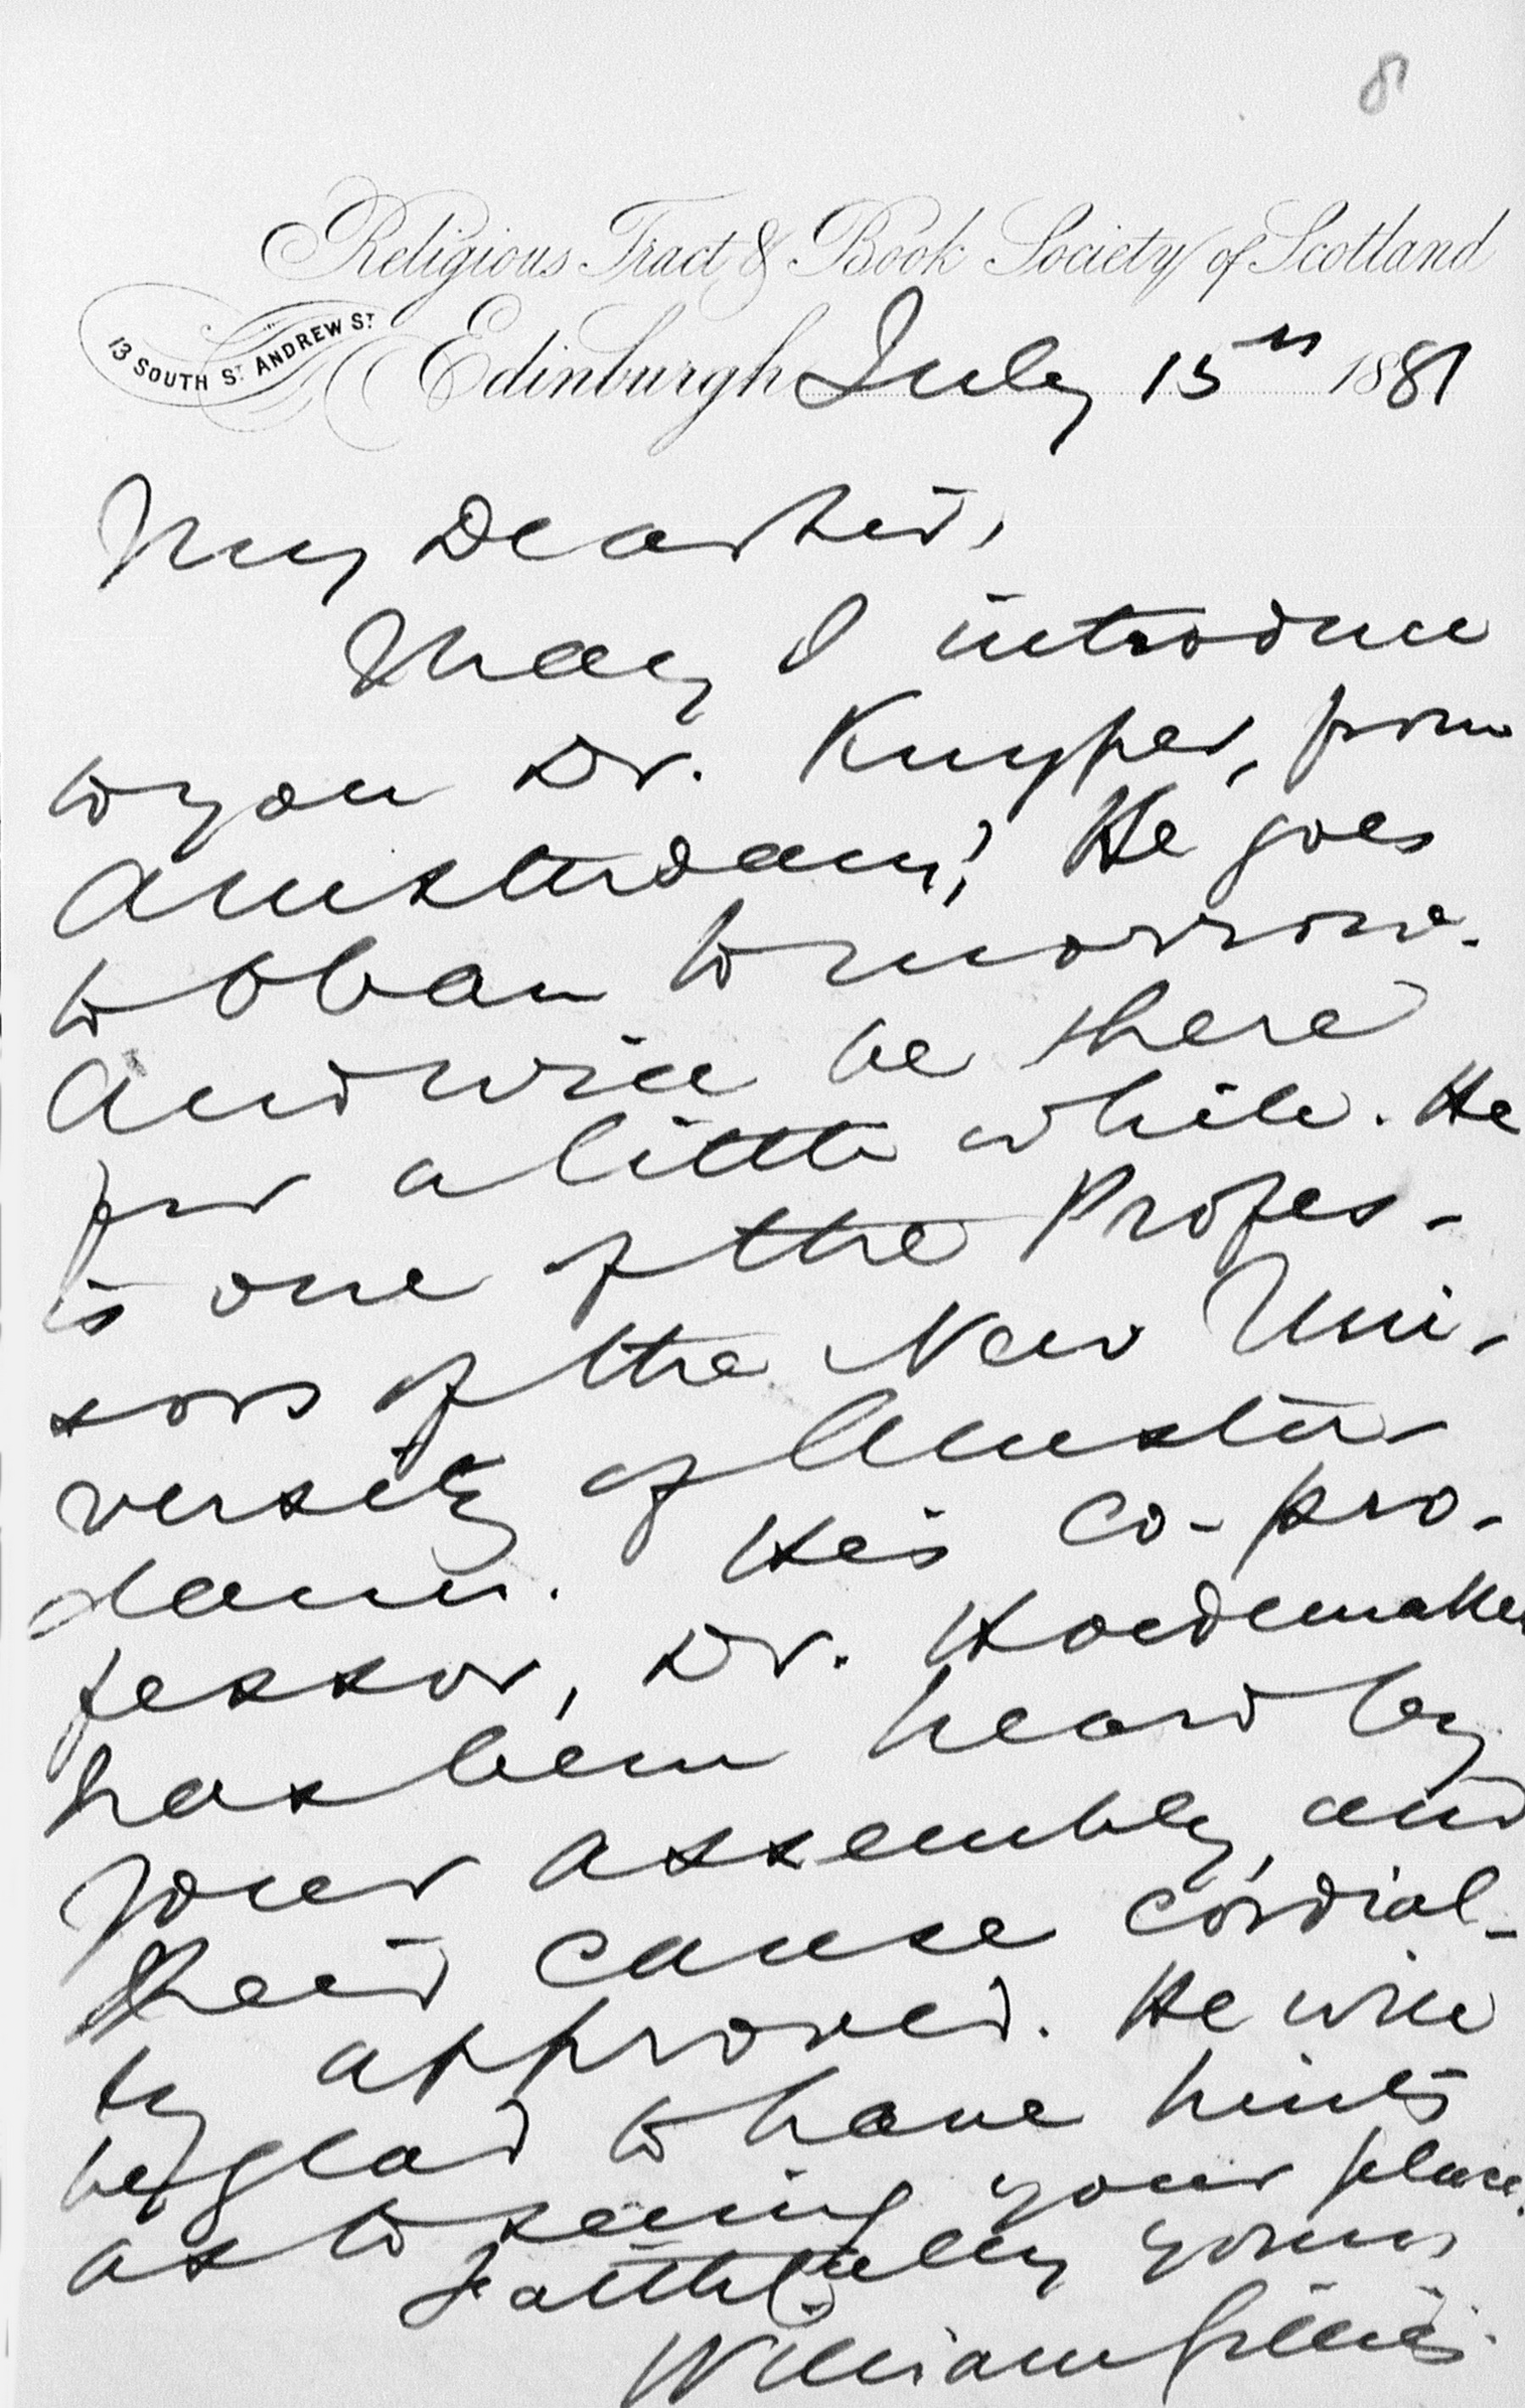 8
Religious Tract & Book Society of Scotland
13 SOUTH ST. ANDREW ST.
Edinburgh July 15th 1881
My Dear Sir,
May I introduce
to you Dr. Kuyper, from
Amsterdam? He goes
to Oban to morrow.
and will be there
for a little while. He
is one of the Profes-
sors of the New Uni-
versity of Amster-
dam. His co-pro-
fessor, Dr. Hoedemaker
has been heard by
your assembly, and
their cause cordial-
ly approved. He will
be glad to have hints
as to seeing your place.
Faithfully yours
William Gillies.